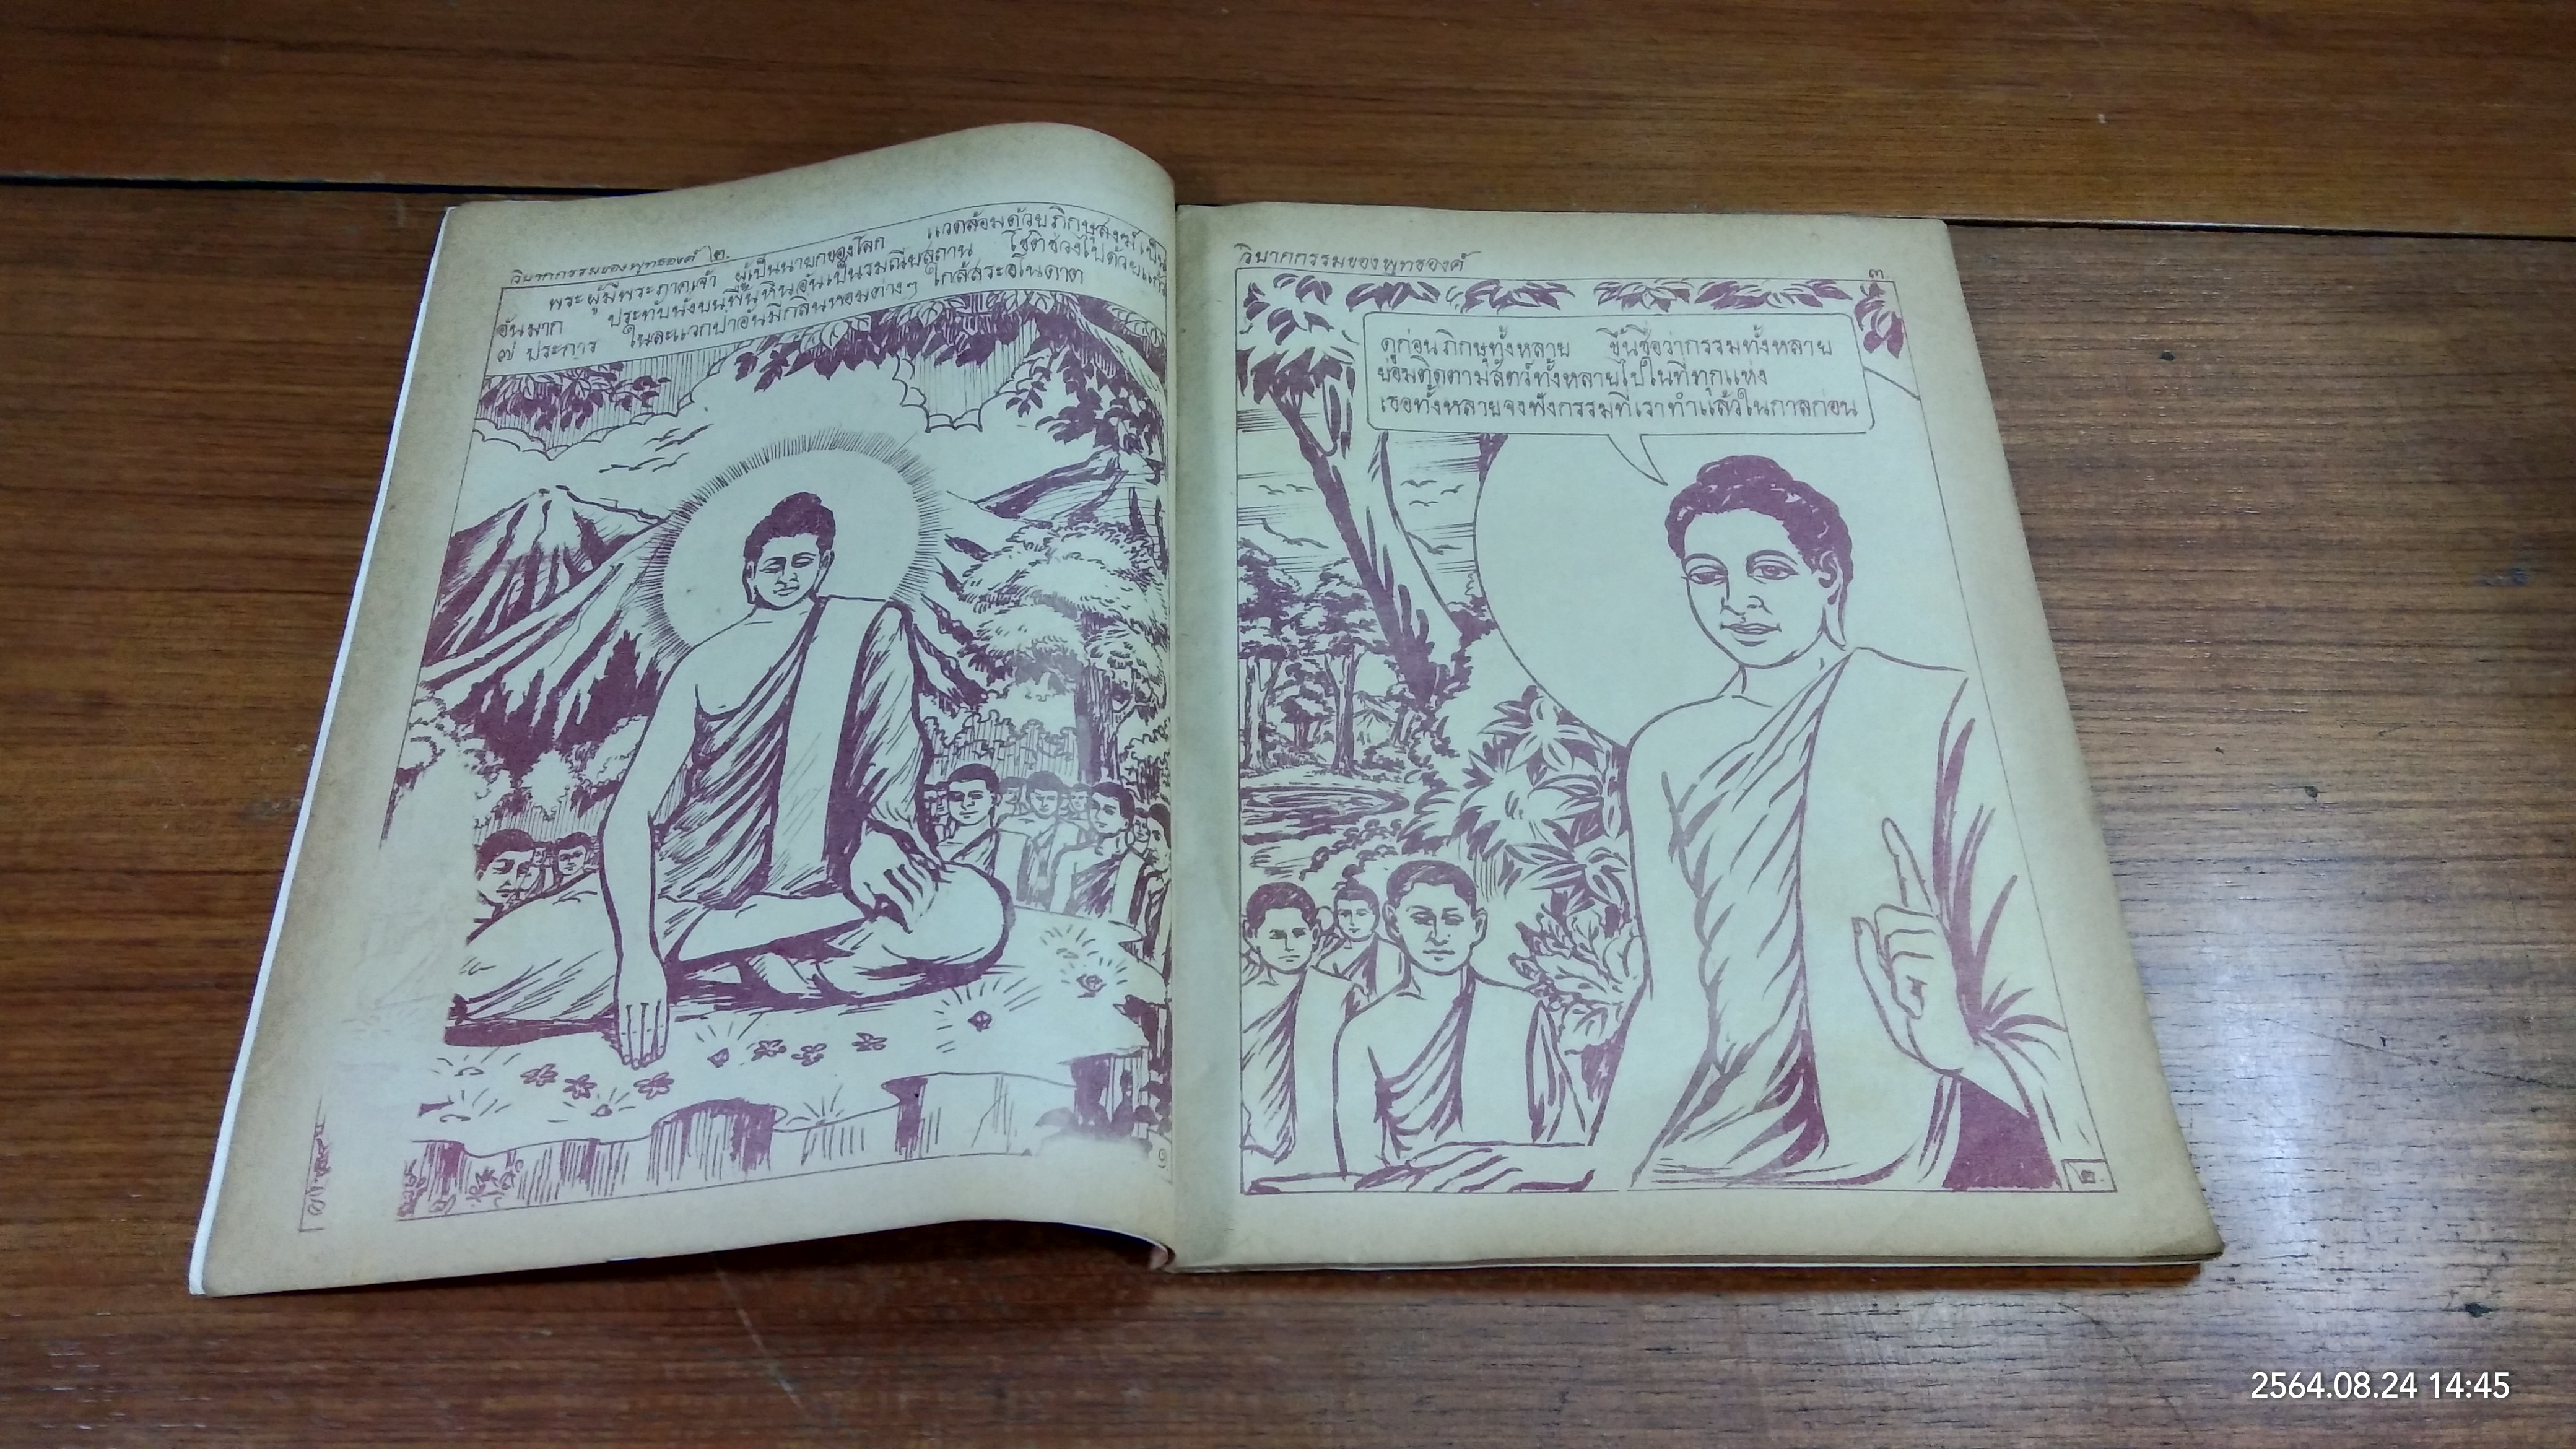 วิบากกรรมของพุทธองค์ ๒.
พระผู้มีพระภาคเจ้า ผู้เป็นนายกของโลก แวดล้อมด้วยภิกษุสงฆ์เป็น
อันมาก ประทับนั่งบนพื้นหินอันเป็นรมณียสถาน โชติช่วงไปด้วยแก้ว
๗ ประการ ในละแวกป่าอันมีกลิ่นหอมต่างๆ ใกล้สระอโนดาต
๑
วิบากกรรมของพุทธองค์ ๓
ดูก่อนภิกษุทั้งหลาย ขึ้นชื่อว่ากรรมทั้งหลาย
ย่อมติดตามสัตว์ทั้งหลายไปในที่ทุกแห่ง
เธอทั้งหลายจงฟังกรรมที่เราทำแล้วในกาลก่อน
๒.
2564.08.24 14:45